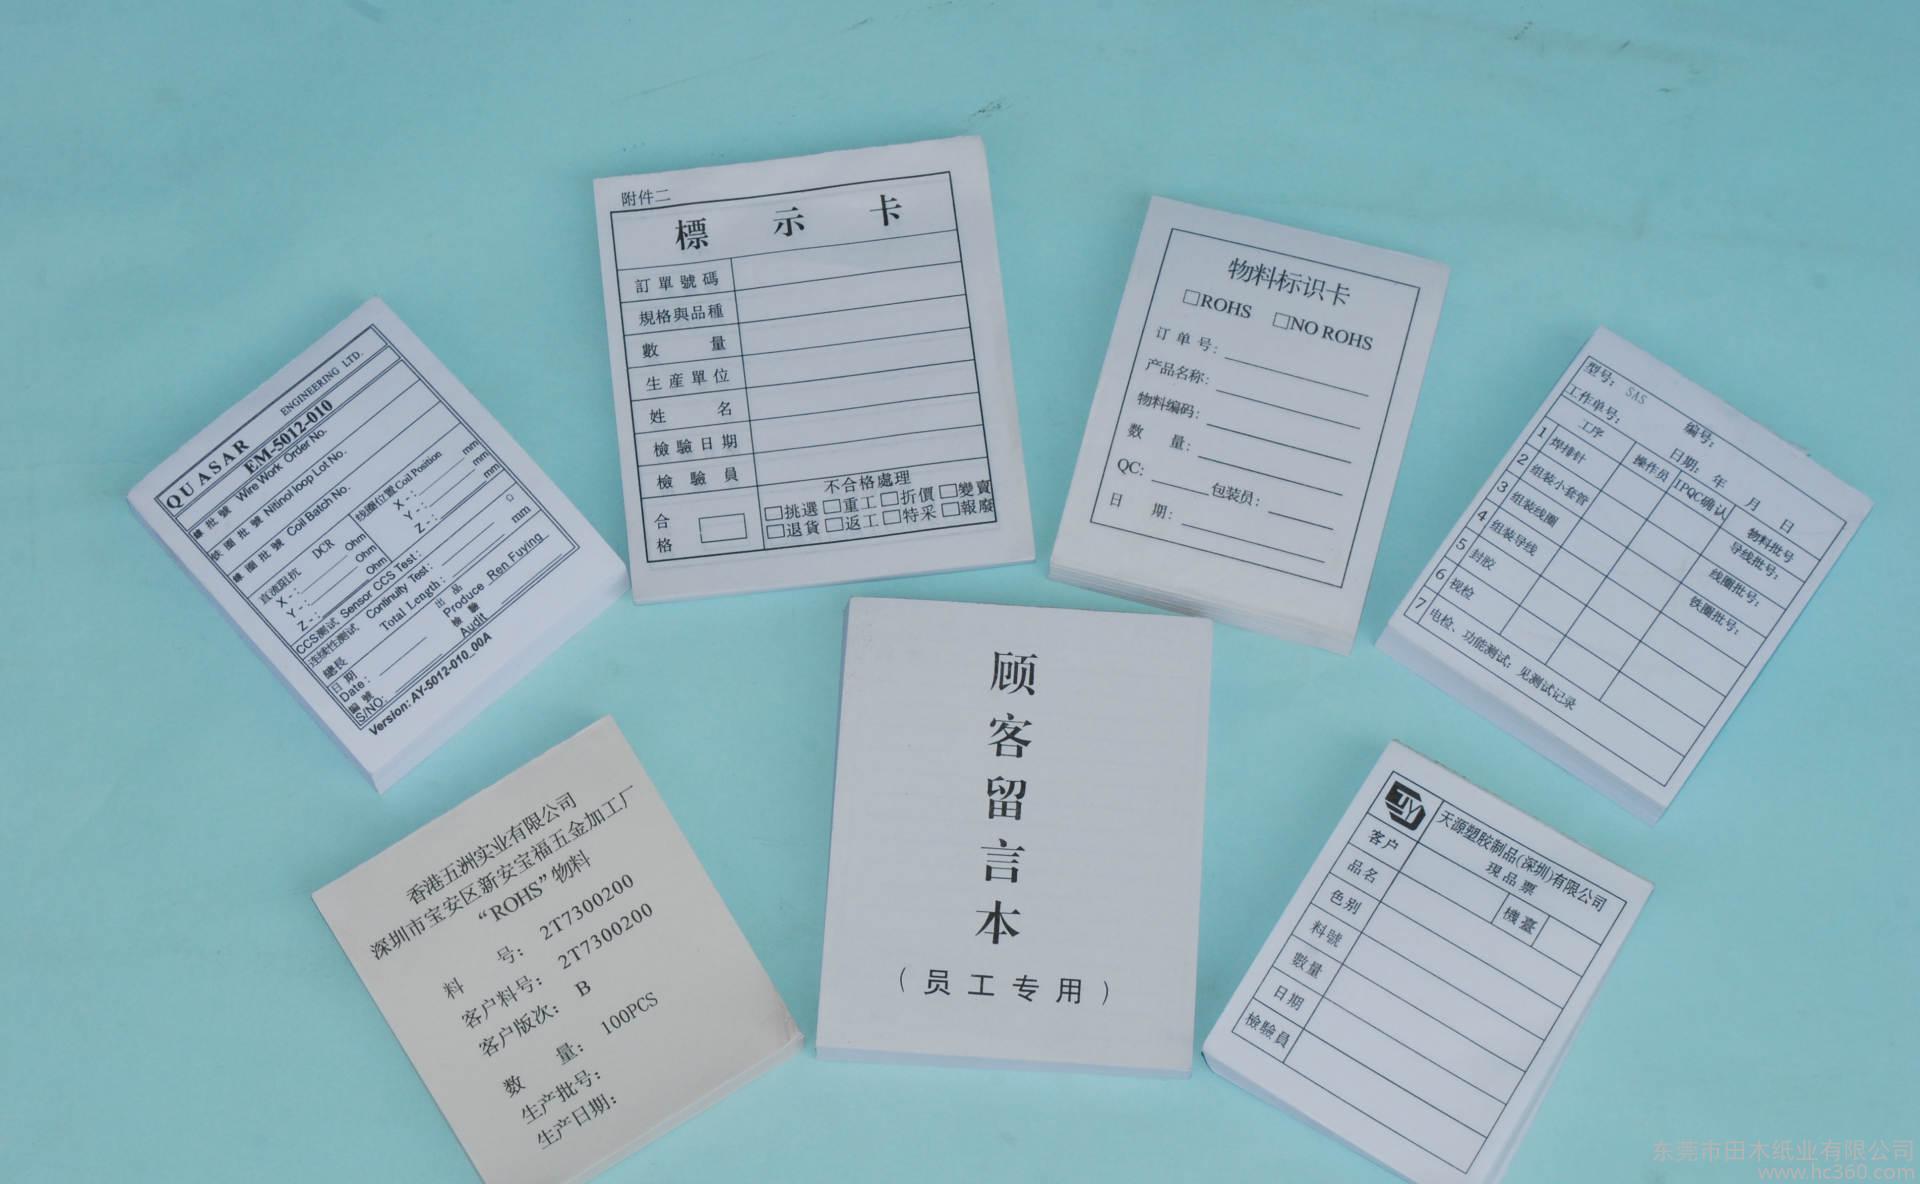 附件二
標 示 卡
訂單號碼
規格與品種
數 量
生産單位
姓 名
檢驗日期
檢驗員
合格
不合格處理
□挑選 □重工 □折價 □變賣
□退貨 □返工 □特采 □報廢
物料标识卡
□ROHS □NO ROHS
订 单 号：
产品名称：
物料编码：
数 量：
QC： 包装员：
日 期：
QUASAR ENGINEERING LTD.
EM-5012-010
綫 批 號 Wire Work Order No.
鈦 圈 批 號 Nitinol loop Lot No.
線 圈 批 號 Coil Batch No.
直流阻抗 DCR 线圈位置 Coil Position
X -： Ohm X -： mm
Y -： Ohm Y -： mm
Z -： Ohm Z -： mm
CCS测试 Sensor CCS Test： Ω
连续性测试 Continuity Test：
總長 Total Length： mm
日 期 出 品
Date： Produce Ren Fuying
編 號 檢 驗
S/NO: Audit
Version: AY-5012-010_00A
型号： SAS 编号：
工作单号： 日期： 年 月 日
工序 操作员 IPQC确认 物料批号
1 焊排针 导线批号：
2 组装小套管 线圈批号：
3 组装线圈 铁圈批号：
4 组装导线
5 封胶
6 视检
7 电检、功能测试：见测试记录
香港五洲实业有限公司
深圳市宝安区新安宝福五金加工厂
“ROHS”物料
料 号： 2T7300200
客户料号： 2T7300200
客户版次： B
数 量： 100PCS
生产批号：
生产日期：
顾
客
留
言
本
（员工专用）
TY
天源塑胶制品(深圳)有限公司
現品票
客户
品名 機臺
色别
料號
數量
日期
檢驗員
东莞市田木纸业有限公司
www.hc360.com